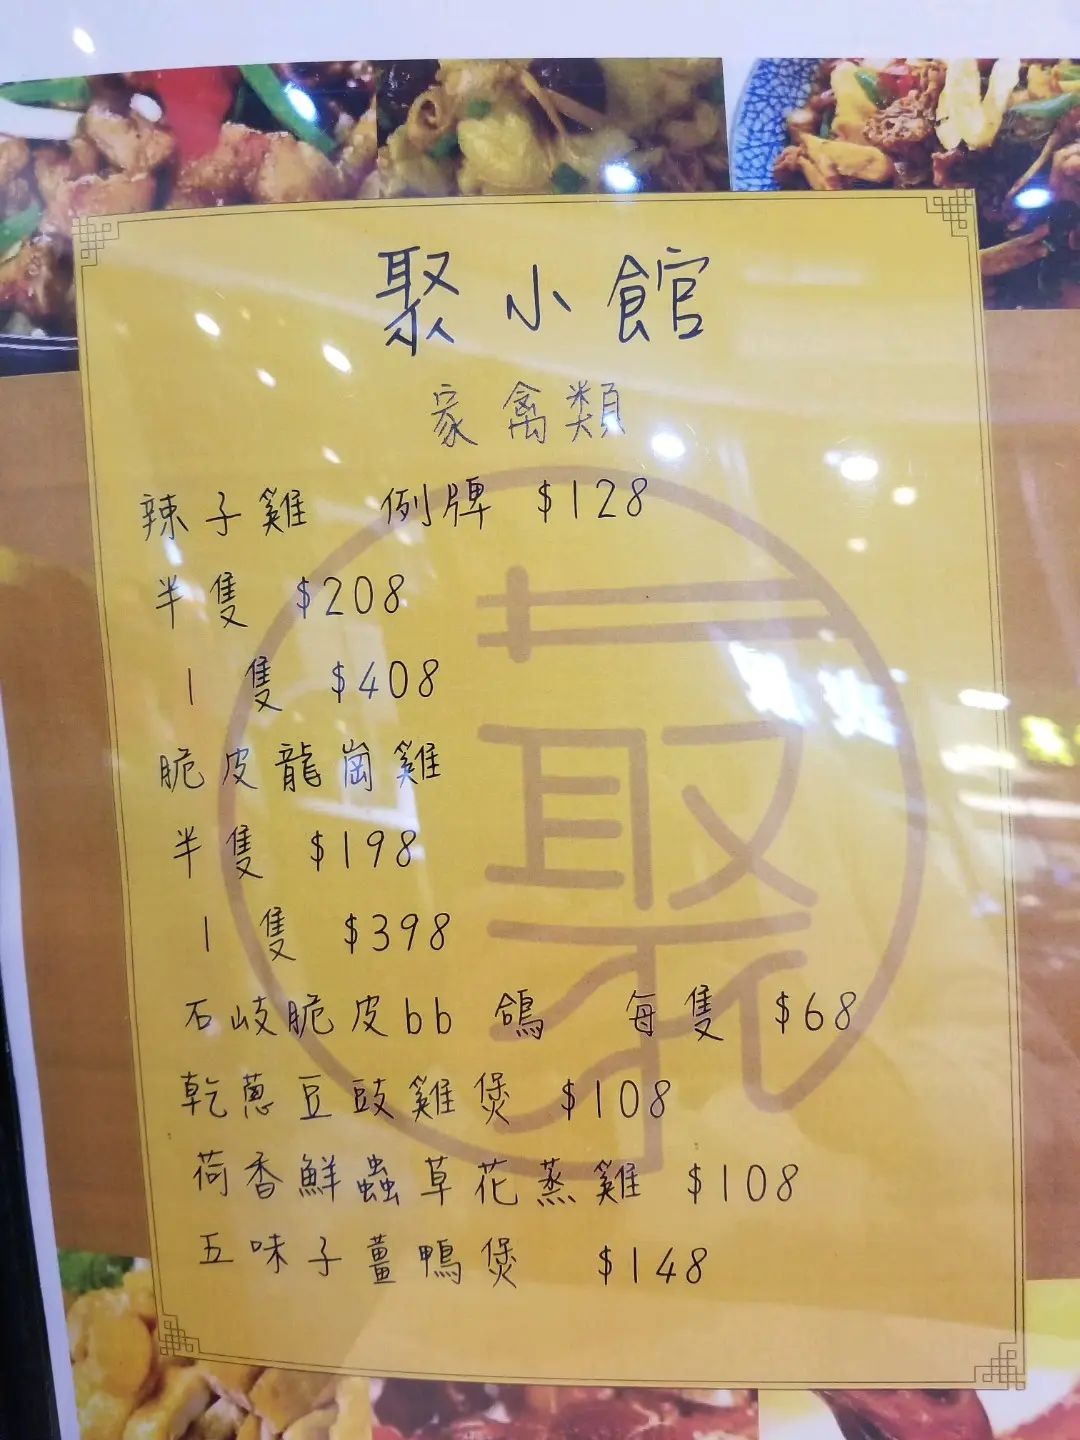 聚小館
家禽類
辣子雞 例牌 $128
半隻 $208
1 隻 $408
脆皮龍崗雞
半隻 $198
1 隻 $398
石岐脆皮bb 鴿 每隻 $68
乾蔥豆豉雞煲 $108
荷香鮮蟲草花蒸雞 $108
五味子薑鴨煲 $148
聚